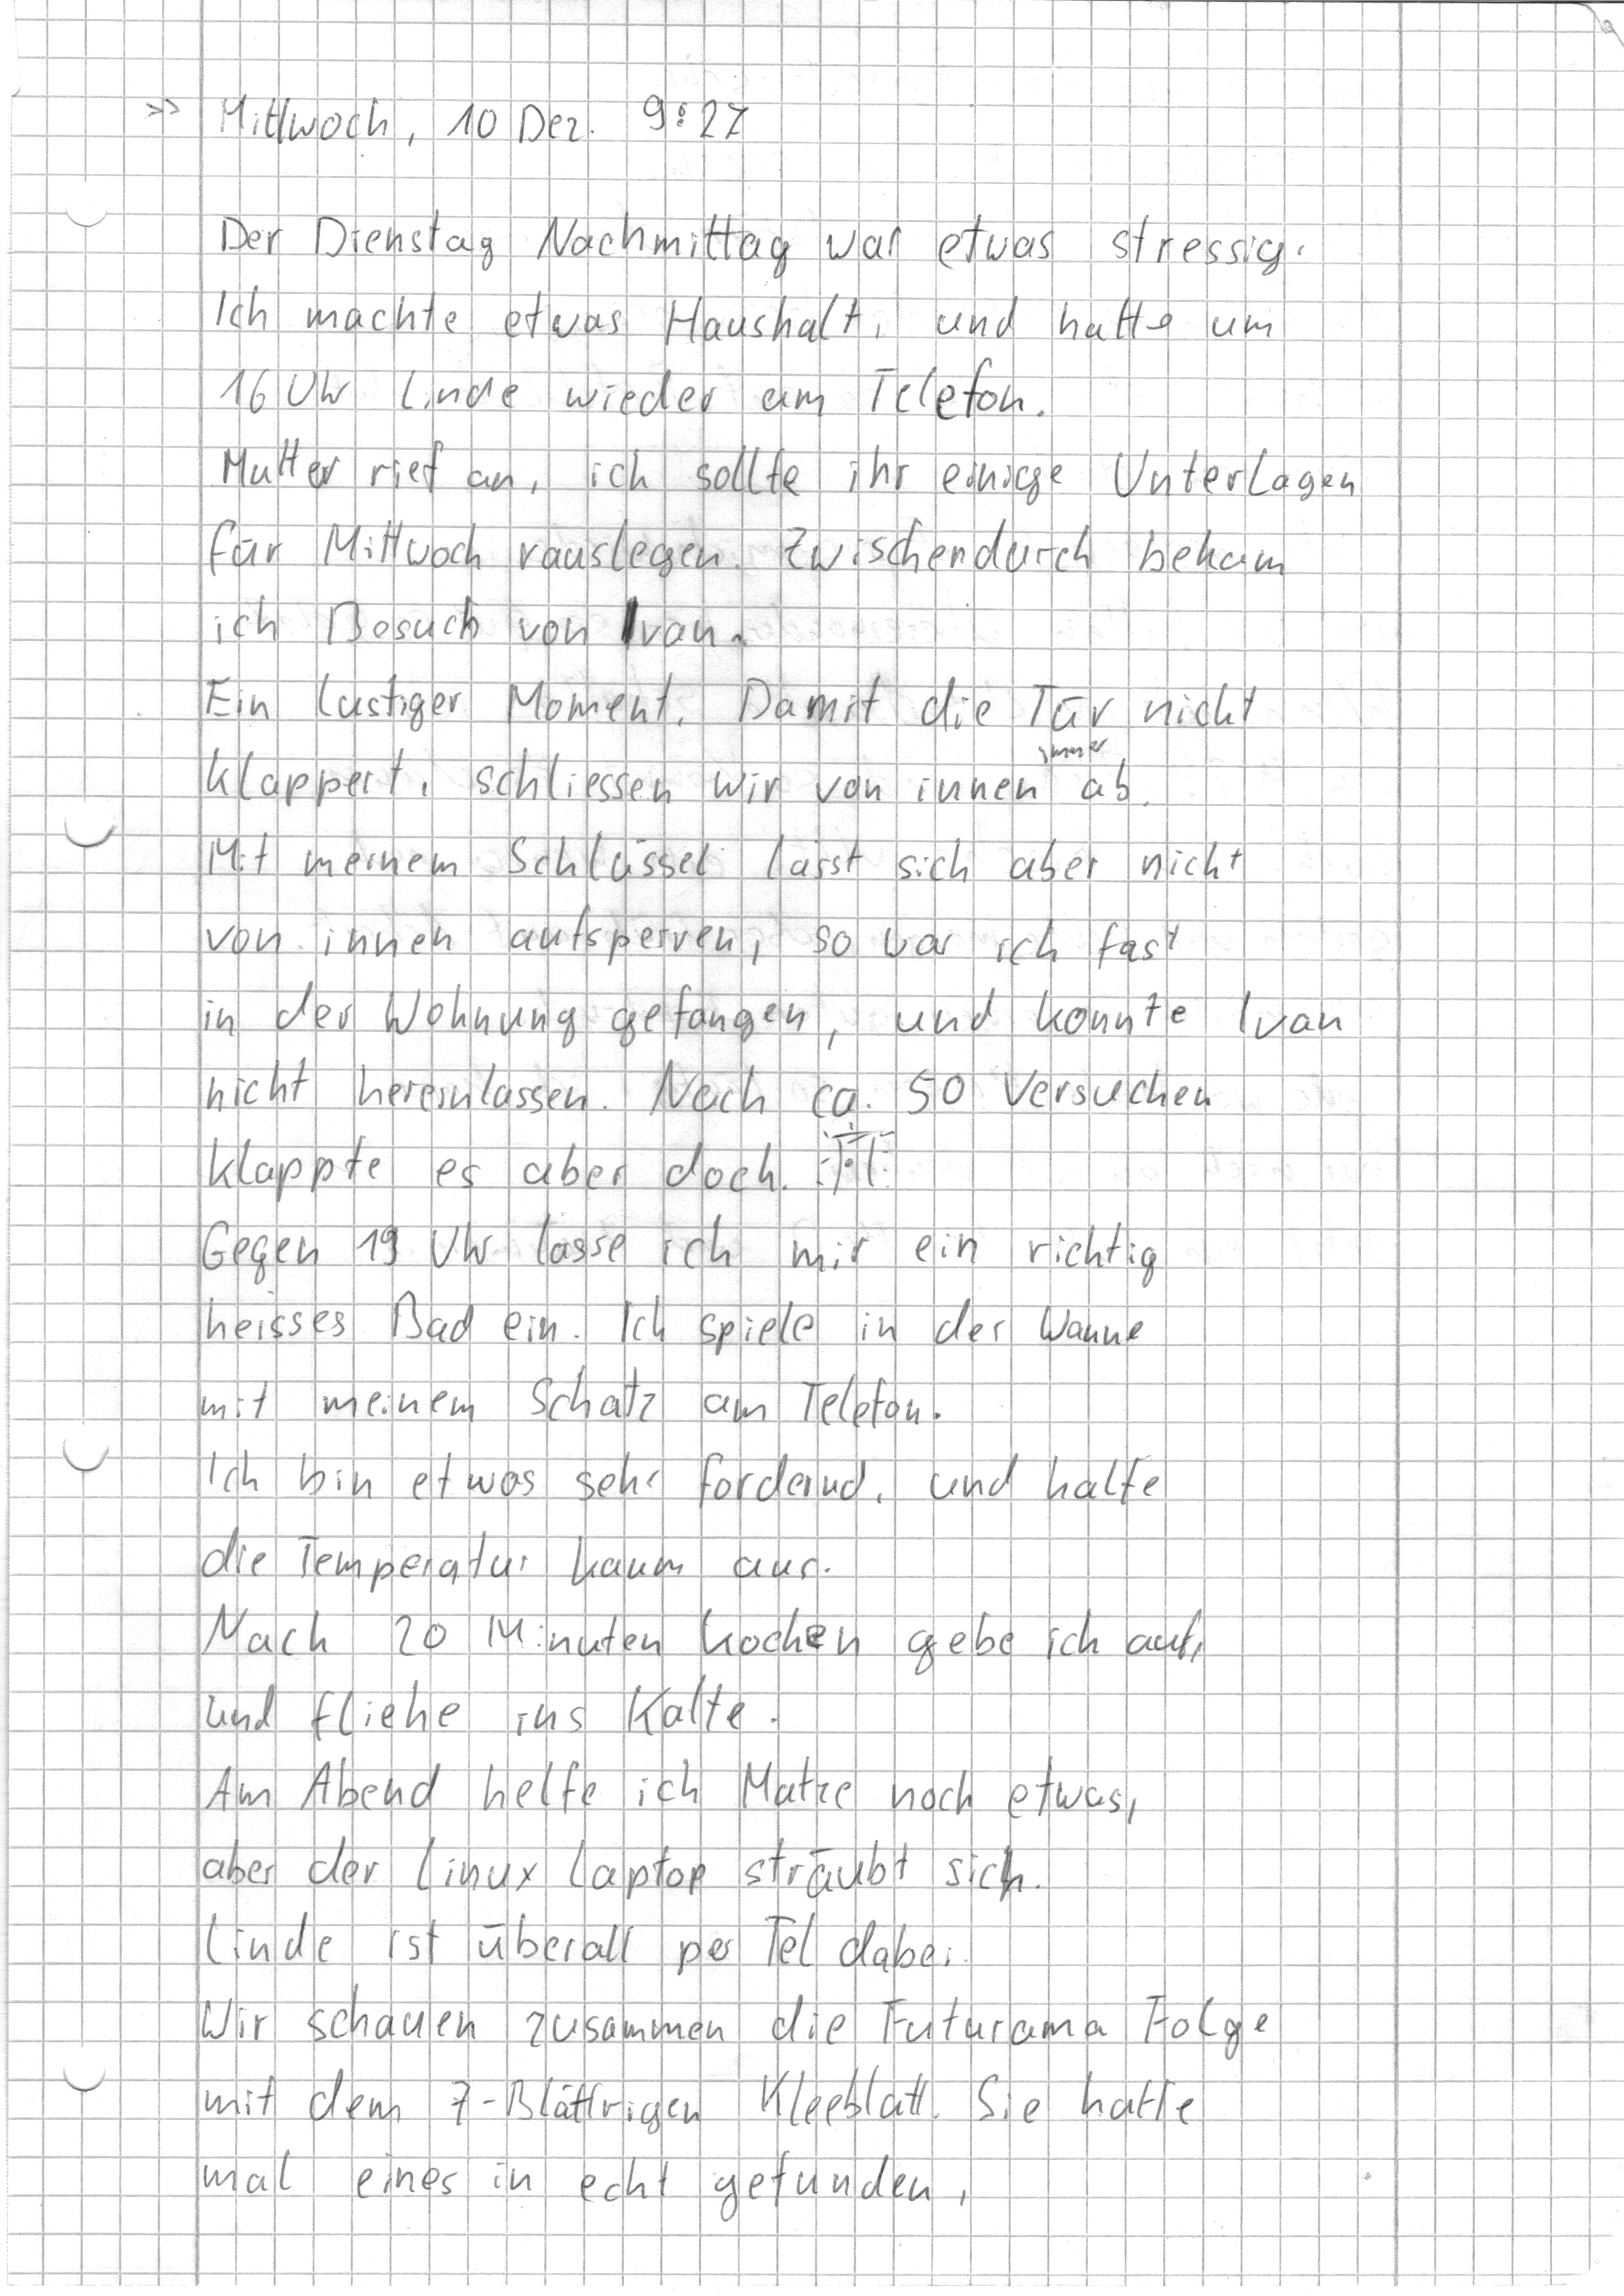 >> Mittwoch, 10 Dez. 9:27
Der Dienstag Nachmittag war etwas stressig.
Ich machte etwas Haushalt, und hatte um
16 Uhr Linde wieder am Telefon.
Mutter rief an, ich sollte ihr einige Unterlagen
für Mittwoch rauslegen. Zwischendurch bekam
ich Besuch von Ivan.
Ein lustiger Moment. Damit die Tür nicht
immer
klappert, schliessen wir von innen ab.
Mit meinem Schlüssel lässt sich aber nicht
von innen aufsperren, so war ich fast
in der Wohnung gefangen, und konnte Ivan
nicht hereinlassen. Nach ca. 50 Versuchen
klappte es aber doch.
Gegen 19 Uhr lasse ich mir ein richtig
heisses Bad ein. Ich spiele in der Wanne
mit meinem Schatz am Telefon.
Ich bin etwas sehr fordernd, und halte
die Temperatur kaum aus.
Nach 20 Minuten kochen gebe ich auf,
und fliehe ins Kalte.
Am Abend helfe ich Matze noch etwas,
aber der Linux Laptop sträubt sich.
Linde ist überall per Tel dabei.
Wir schauen zusammen die Futurama Folge
mit dem 7-Blättrigen Kleeblatt. Sie hatte
mal eines in echt gefunden,